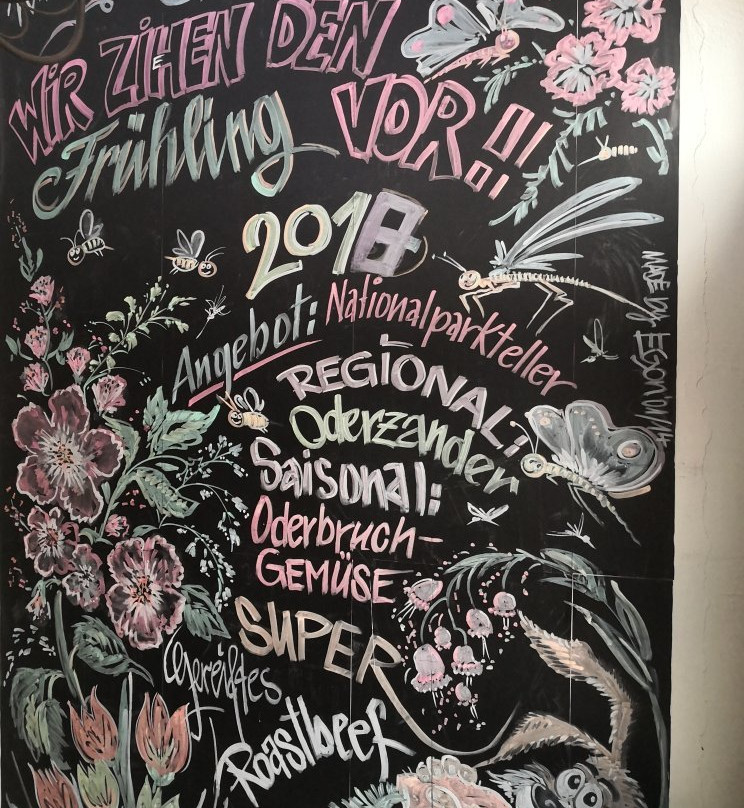 WIR ZIHEN DEN
e
Frühling VOR!!
2018
Angebot: Nationalparkteller
REGIONAL:
Oderzander
Saisonal:
Oderbruch-
GEMÜSE
SUPER
gereiftes
Roastbeef
MADE by EGON